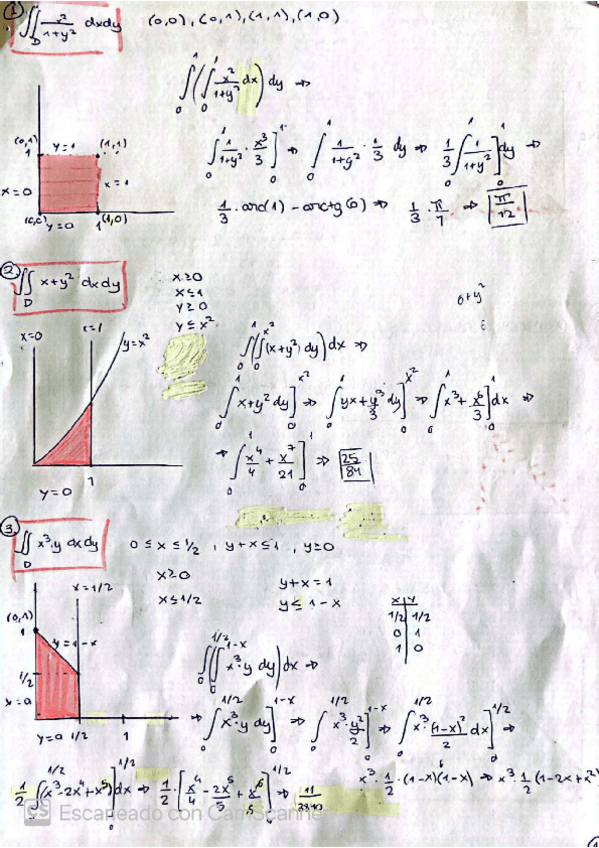 ① ∬_D x²/(1+y²) dxdy (0,0), (0,1), (1,1), (1,0)
∫₀¹(∫₀¹ x²/(1+y²) dx) dy ⇒
(0,1) y=1 (1,1)
1
x=0 x=1
(0,0) y=0 1 (1,0)
∫₀¹ 1/(1+y²) · x³/3 ]₀¹ ⇒ ∫₀¹ 1/(1+y²) · 1/3 dy ⇒ 1/3 ∫₀¹ 1/(1+y²) ]₀¹ dy ⇒
1/3 · arc(1) - arctg(0) ⇒ 1/3 · π/4 ⇒ π/12
② ∬_D x+y² dxdy
x≥0
x≤1
y≥0
y≤x²
0+y²
x=0 x=1 y=x²
y=0 1
∫₀¹(∫₀^x² (x+y²) dy) dx ⇒
∫₀¹ x+y² dy ]₀^x² ⇒ ∫₀¹ yx + y³/3 dy ]₀^x² ⇒ ∫₀¹ x³ + x⁶/3 ]₀¹ dx ⇒
⇒ ∫₀¹ x⁴/4 + x⁷/21 ]₀¹ ⇒ 25/84
③ ∬_D x³·y dxdy 0 ≤ x ≤ 1/2 , y+x ≤ 1 , y≥0
x≥0 y+x = 1
x≤1/2 y≤ 1-x
x | y
1/2 | 1/2
0 | 1
1 | 0
x=1/2
(0,1)
1 y=1-x
1/2
x=0
y=0 1/2 1
∫₀^1/2 (∫₀^1-x x³·y dy) dx ⇒
⇒ ∫₀^1/2 x³·y dy ]₀^1-x ⇒ ∫₀^1/2 x³·y²/2 ]₀^1-x ⇒ ∫₀^1/2 x³·(1-x)²/2 dx ]₀^1/2 ⇒
x³ · 1/2 · (1-x)(1-x) ⇒ x³ · 1/2 (1-2x+x²)
1/2 ∫₀^1/2 (x³-2x⁴+x⁵) ]₀^1/2 dx ⇒ 1/2 · [ x⁴/4 - 2x⁵/5 + x⁶/6 ]₀^1/2 ⇒ 11/3840
CS Escaneado con CamScanner